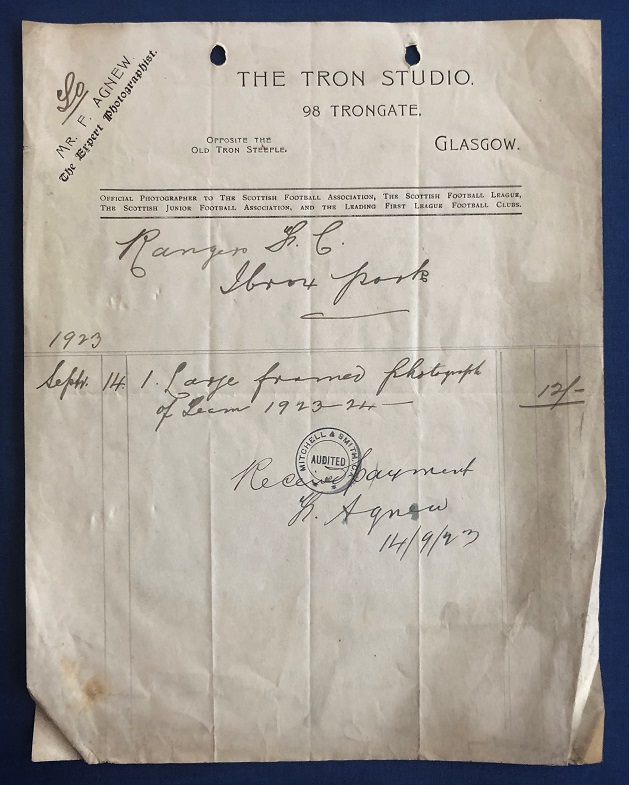 To
MR. F. AGNEW.
The Expert Photographist.
THE TRON STUDIO.
98 TRONGATE,
OPPOSITE THE
OLD TRON STEEPLE.
GLASGOW.
OFFICIAL PHOTOGRAPHER TO THE SCOTTISH FOOTBALL ASSOCIATION, THE SCOTTISH FOOTBALL LEAGUE,
THE SCOTTISH JUNIOR FOOTBALL ASSOCIATION, AND THE LEADING FIRST LEAGUE FOOTBALL CLUBS.
Rangers F. C.
Ibrox park
1923
Sept. 14 1. Large framed photograph 12/-
of Team 1923-24-
MITCHELL & SMITH, C.A.
AUDITED
Received payment
F. Agnew
14/9/23